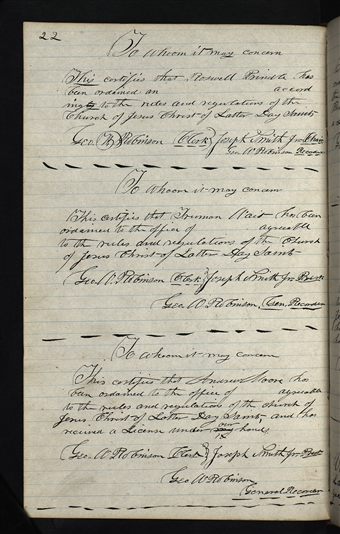 22
To whom it may concern
This certifies that Roswell Brindle has
been ordained an accord
ing to the rules and regulations of the
Church of Jesus Christ of Latter Day Saints
Geo. W. Robinson Clerk} Joseph Smith jr
Geo. W Robinson Recorder
To whom it may concern
This certifies that Truman Wait has been
ordained to the office of agreeable
to the rules and regulations of the Church
of Jesus Christ of Latter Day Saints
Geo. W. Robinson Clerk} Joseph Smith jr Prest
Geo. W Robinson, Gen. Recorder
To whom it may concern
This certifies that Andrew Moore has
been ordained to the office of agreeable
to the rules and regulations of the church of
Jesus Christ of Latter Day Saints and has
received a License under our hands
Geo. W Robinson Clerk} Joseph Smith jr Prest
Geo W Robinson
General Recorder